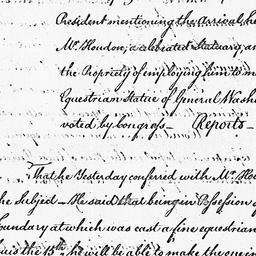 President mentioning the arrival here
Mr. Houdon, a celebrated Statuary, an
the Propriety of employing him to m
Equestrian Statue of General Wash
voted by Congress — Reports —
That he Yesterday conferred with Mr. Hou
he subject — He said that being in Possession of
oundary at which was cast a fine equestrian
ouis the 15th, he will be able to make the one in